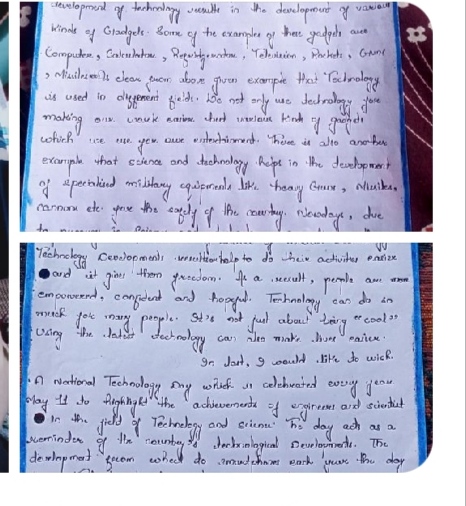 development of technology results in the development of various
kinds of Gadgets. Some of the examples of these gadgets are
Computer, Calculator, Refridgerator, Television, Rockets, Guns
, Missiles. Is clear from above given example that Technology
is used in different fields. We not only use technology for
making our work easier but various kinds of gadgets
which we use for our entertainment. There is also another
example that science and technology helps in the development
of specialised military equipments like heavy Guns, Missiles,
cannons etc for the safety of the country. Nowadays, due
Technology Developments help to do their activities easier
and it gives them freedom. As a result, people are
empowered, confident and hopeful. Technology can do so
much for many people. It's not just about being "cool"
Using the latest technology can also make lives easier.
In last, I would like to wish.
A National Technology Day which is celebrated every year
May 11 to highlight the achievements of engineers and scientist
In the field of Technology and science. This day acts as a
reminder of the country's technological Developments. The
development from wheel do each year the day